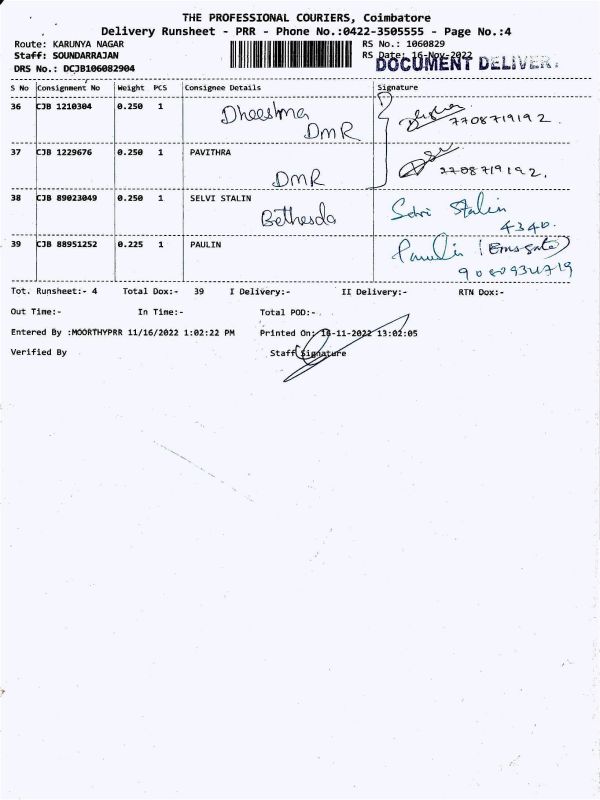 THE PROFESSIONAL COURIERS, Coimbatore
Delivery Runsheet - PRR - Phone No.:0422-3505555 - Page No.:4
Route: KARUNYA NAGAR RS No.: 1060829
Staff: SOUNDARRAJAN RS Date: 16-Nov-2022
DOCUMENT DELIVER
DRS No.: DCJB106082904
S No Consignment No Weight PCS Consignee Details Signature
36 CJB 1210304 0.250 1 Dheeshma 7708719192.
DMR
37 CJB 1229676 0.250 1 PAVITHRA
DMR 7708719192.
38 CJB 89023049 0.250 1 SELVI STALIN Selvi Stalin
Bethesda 4340.
39 CJB 88951252 0.225 1 PAULIN Paulin
Tot. Runsheet:- 4 Total Dox:- 39 I Delivery:- II Delivery:- RTN Dox:-
Out Time:- In Time:- Total POD:-
Entered By :MOORTHYPRR 11/16/2022 1:02:22 PM Printed On: 16-11-2022 13:02:05
Verified By Staff Signature